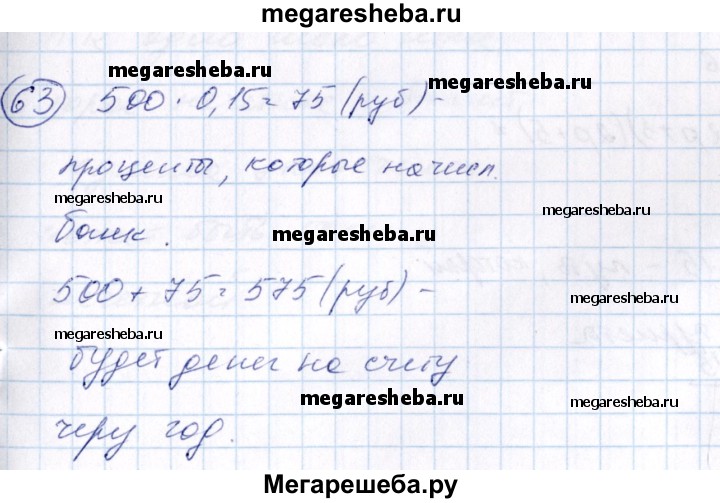 megaresheba.ru
megaresheba.ru
megaresheba.ru
63 500 · 0,15 = 75 (руб) -
проценты, которые начисл.
megaresheba.ru
megaresheba.ru
банк.
megaresheba.ru
500 + 75 = 575 (руб) -
megaresheba.ru
megaresheba.ru
будет денег на счету
megaresheba.ru
megaresheba.ru
через год.
Мегарешеба.ру